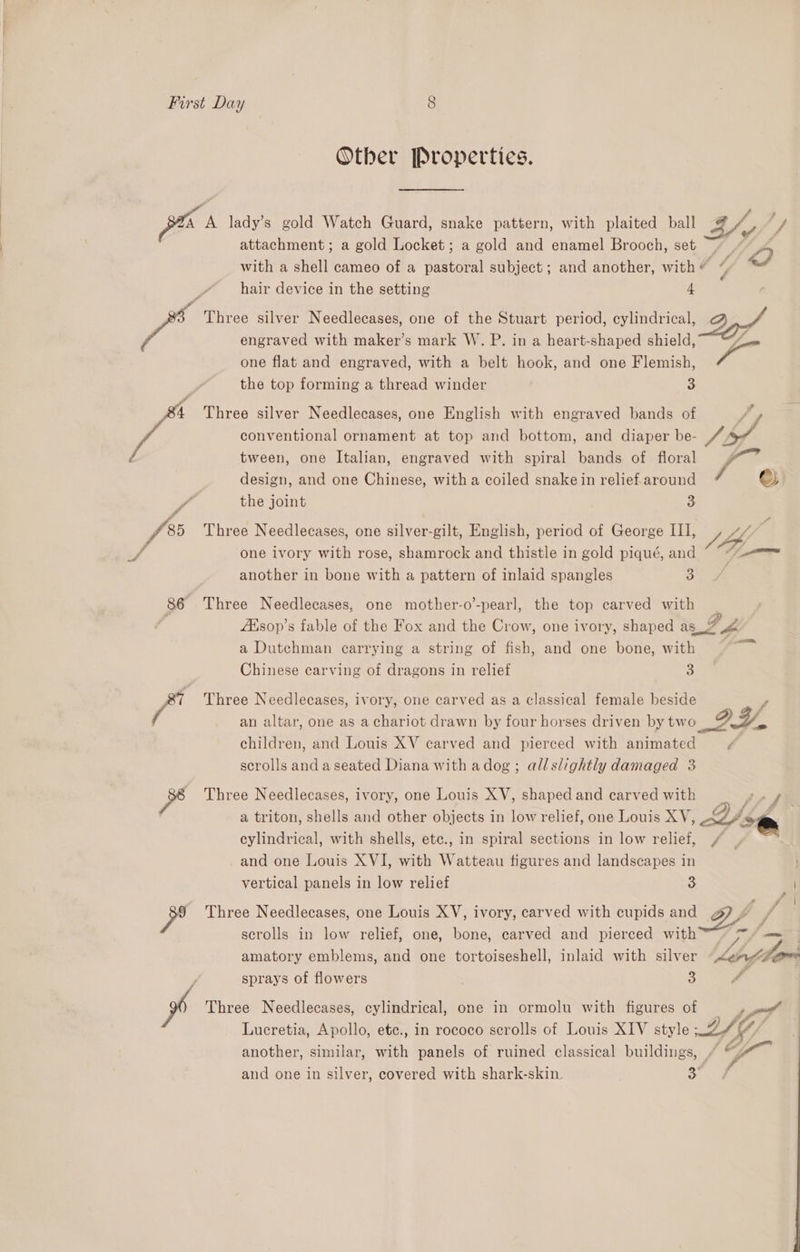 First Day 8
Other Properties.
82A A lady's gold Watch Guard, snake pattern, with plaited ball
attachment; a gold Locket; a gold and enamel Brooch, set
with a shell cameo of a pastoral subject; and another, with
hair device in the setting 4
83 Three silver Needlecases, one of the Stuart period, cylindrical,
engraved with maker's mark W. P. in a heart-shaped shield,
one flat and engraved, with a belt hook, and one Flemish,
the top forming a thread winder 3
84 Three silver Needlecases, one English with engraved bands of
conventional ornament at top and bottom, and diaper be-
tween, one Italian, engraved with spiral bands of floral
design, and one Chinese, with a coiled snake in relief around
the joint 3
85 Three Needlecases, one silver-gilt, English, period of George III,
one ivory with rose, shamrock and thistle in gold piqué, and
another in bone with a pattern of inlaid spangles 3
86 Three Needlecases, one mother-o'-pearl, the top carved with
Æsop's fable of the Fox and the Crow, one ivory, shaped as
a Dutchman carrying a string of fish, and one bone, with
Chinese carving of dragons in relief 3
87 Three Needlecases, ivory, one carved as a classical female beside
an altar, one as a chariot drawn by four horses driven by two
children, and Louis XV carved and pierced with animated
scrolls and a seated Diana with a dog; all slightly damaged 3
88 Three Needlecases, ivory, one Louis XV, shaped and carved with
a triton, shells and other objects in low relief, one Louis XV,
cylindrical, with shells, etc., in spiral sections in low relief,
and one Louis XVI, with Watteau figures and landscapes in
vertical panels in low relief 3
89 Three Needlecases, one Louis XV, ivory, carved with cupids and
scrolls in low relief, one, bone, carved and pierced with
amatory emblems, and one tortoiseshell, inlaid with silver
sprays of flowers 3
90 Three Needlecases, cylindrical, one in ormolu with figures of
Lucretia, Apollo, etc., in rococo scrolls of Louis XIV style;
another, similar, with panels of ruined classical buildings,
and one in silver, covered with shark-skin. 3